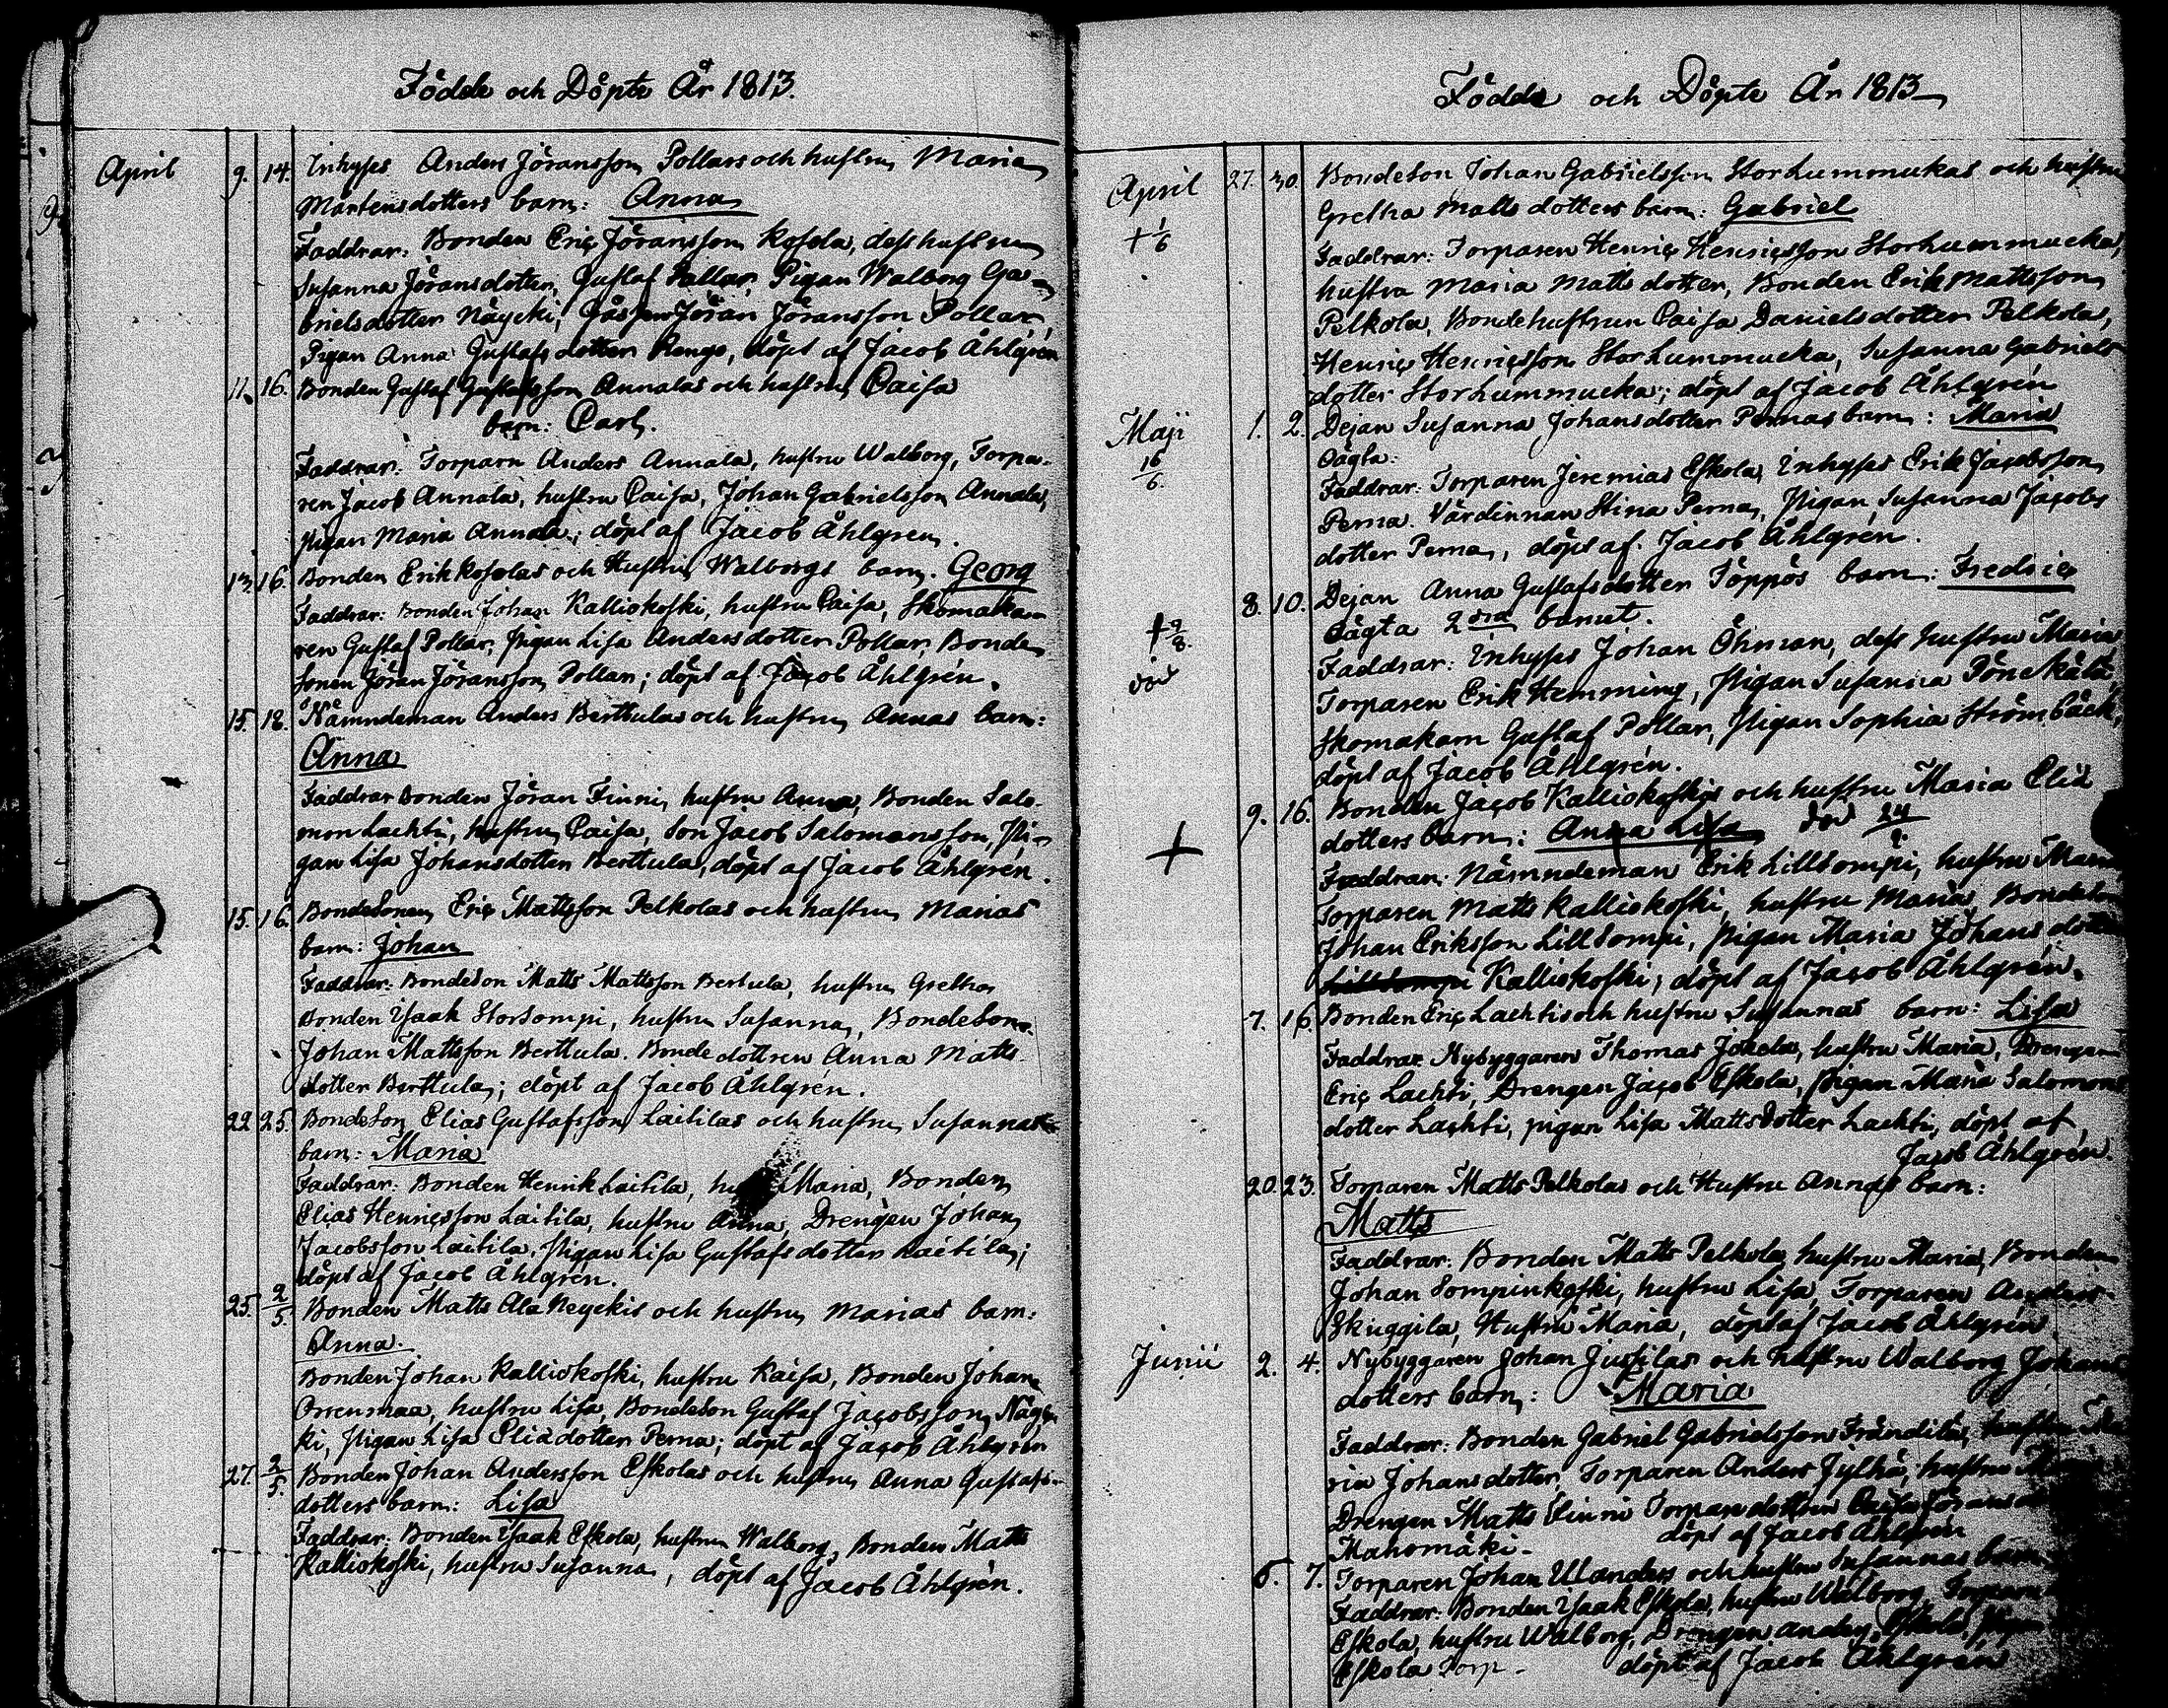 Födde och Döpte År 1813.
April 9. 14. Inhyses Anders Jöransson Pollars och hustrus Maria
Mårtensdotters barn: Anna
Faddrar: Bonden Eric Jöransson Kosola, dess hustru
Susanna Jöransdotter, Gustaf Pollar, Pigan Walborg Ga-
brielsdotter Näycki, Jöran Jöransson Pollar,
Pigan Anna Gustafsdotter Rengo, döpt af Jacob Åhlgrén
11. 16. Bonden Gustaf Gustafsson Annalas och hustrus Caisa
barn: Carl.
Faddrar: Torparn Anders Annala, hustru Walborg, Torpa-
ren Jacob Annala, hustru Caisa, Johan Gabrielsson Annala,
pigan Maria Annala; döpt af Jacob Åhlgren.
13. 16. Bonden Erik Kosolas och Hustrus Walborgs barn. Georg
Faddrar: Bonden Johan Kalliokoski, hustru Caisa, Skomaka-
ren Gustaf Pollar, Pigan Lisa Andersdotter Pollar, Bonde-
sonen Jöran Jöransson Pollar; döpt af Jacob Åhlgrén.
15. 18. Nämndeman Anders Berttulas och hustrus Annas barn:
Anna
Faddrar Bonden Jöran Finni, hustru Anna, Bonden Salo-
mon Lachti, hustru Caisa, Son Jacob Salomonsson, Pi-
gan Lisa Johansdotter Berttula, döpt af Jacob Åhlgrén.
15. 16. Bondesonen Eric Mattsson Pelkolas och hustrus Marias
barn: Johan
Faddrar: Bondeson Matts Mattsson Bertula, hustru Gretha
Bonden Ysaak Storsompi, hustru Susanna, Bondeson
Johan Mattsson Berttula. Bondedottren Anna Matts-
dotter Berttula; döpt af Jacob Åhlgrén.
22. 25. Bondeson Elias Gustafsson Laitilas och hustrus Susannas
barn: Maria
Faddrar: Bonden Henrik Laitila, Maria, Bonden
Elias Henricsson Laitila, hustru Anna, Drengen Johan
Jacobsson Laitila, Pigan Lisa Gustafsdotter Laitila;
döpt af Jacob Åhlgrén.
25. 2/5. Bonden Matts Ala Neyckis och hustrus Marias barn:
Anna.
Bonden Johan Kalliokoski, hustru Kaisa, Bonden Johan
Orrenmaa, hustru Lisa, Bondeson Gustaf Jacobsson Näyc-
ki, Pigan Lisa Eliædotter Perna; döpt af Jacob Åhlgrén
27. 2/5. Bonden Johan Andersson Eskolas och hustrus Anna Gustafs-
dotters barn: Lisa
Faddrar: Bonden Ysaak Eskola, hustru Walborg, Bonden Matts
Kalliokoski, hustru Susanna, döpt af Jacob Åhlgrén.
Födde och Döpte År 1813
April 27. 30. Bondeson Johan Gabrielsson Storhummukas och hustru
+ 1/6 Gretha Mattsdotters barn: Gabriel
Faddrar: Torparen Henric Henricsson Storhummucka,
hustru Maria Mattsdotter, Bonden Erik Mattsson
Pelkola, Bondehustrun Caisa Danielsdotter Pelkola,
Henric Henricsson Storhummucka, Susanna Gabriels
dotter Storhummucka; döpt af Jacob Åhlgrén
Maji 1. 2. Dejan Susanna Johansdotter Pernas barn: Maria
16/6. Oägta.
Faddrar: Torparen Jeremias Eskola, Inhyses Erik Jacobsson
Perna. Värdinnan Stina Perna, Pigan Susanna Jacobs
dotter Perna, döpt af Jacob Åhlgrén.
8. 10. Dejan Anna Gustafsdotter Töppös barn: Fredric
+ 9/8. Oägta 2dra barnet.
död Faddrar: Inhyses Johan Öhman, dess hustru Maria
Torparen Erik Hemming, Pigan Susanna
Skomakarn Gustaf Pollar, Pigan Sophia Strömbäck,
döpt af Jacob Åhlgrén.
9. 16. Bonden Jacob Kalliokoskis och hustru Maria Eliæ
+ dotters barn: Anna Lisa död 24
Faddrar: Nämndeman Erik Lillsompi, hustru Maria
Torparen Matts Kalliokoski, hustru Maria, Bondeson
Johan Eriksson Lillsompi, pigan Maria Johansdotter
Lillsompi Kalliokoski; döpt af Jacob Åhlgrén.
7. 16. Bonden Eric Lachtis och hustru Susannas barn: Lisa
Faddrar: Nybyggaren Thomas Jokela, hustru Maria, Drengen
Eric Lachti, Drengen Jacob Eskola, pigan Maria Salomons
dotter Lachti, pigan Lisa Mattsdotter Lachti, döpt af
Jacob Åhlgrén.
20. 23. Torparen Matts Pelkolas och Hustru Annas barn:
Matts
Faddrar: Bonden Matts Pelkola, hustru Maria, Bonden
Johan Sompinkoski, hustru Lisa, Torparen Anders
Skuggila, Hustru Maria, döpt af Jacob Åhlgrén
Junii 2. 4. Nybyggaren Johan Jussilas och hustru Walborg Johans
dotters barn: Maria
Faddrar: Bonden Gabriel Gabrielsson Frändilä, hustru Ma
ria Johansdotter, Torparen Anders Jylhä, hustru
Drengen Matts Finni Torparedottren
Mahomäki. döpt af Jacob Åhlgrén
6. 7. Torparen Johan Ulanders och hustru Susannas barn
Faddrar: Bonden Ysaak Eskola, hustru Walborg, Torparen
Eskola, hustru Walborg, Drengen Anders Eskola, Pigan
Eskola Torp. döpt af Jacob Åhlgrén